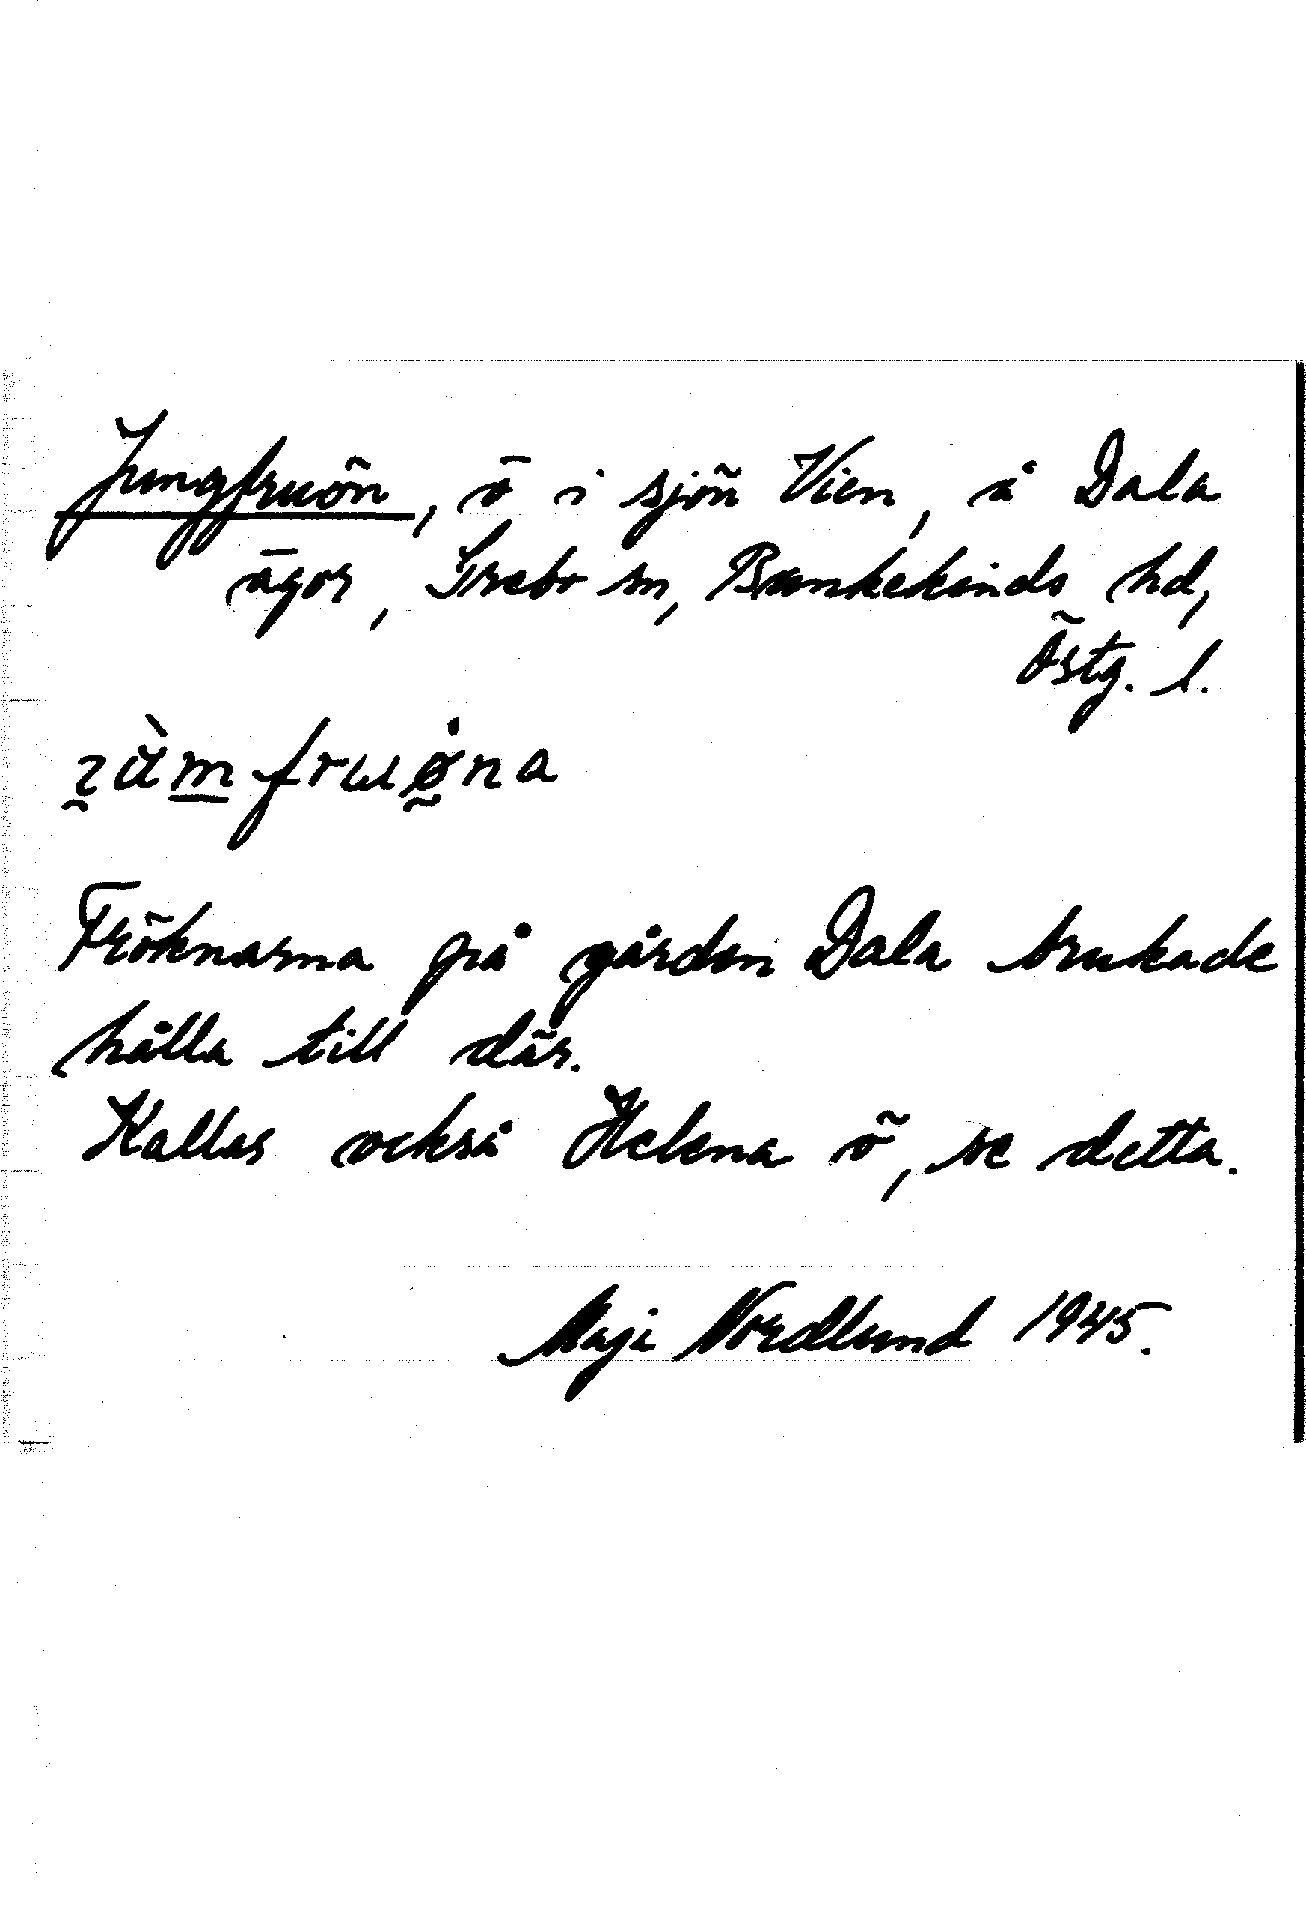 Jungfruön, ö i sjön Vien, å Dala
ägor, Grebo sn, Bankekinds hd,
Östg. l.
Fröknarna på gården Dala brukade
hålla till där.
Kallas också Helena ö, se detta.
Maja Nordlund 1945.